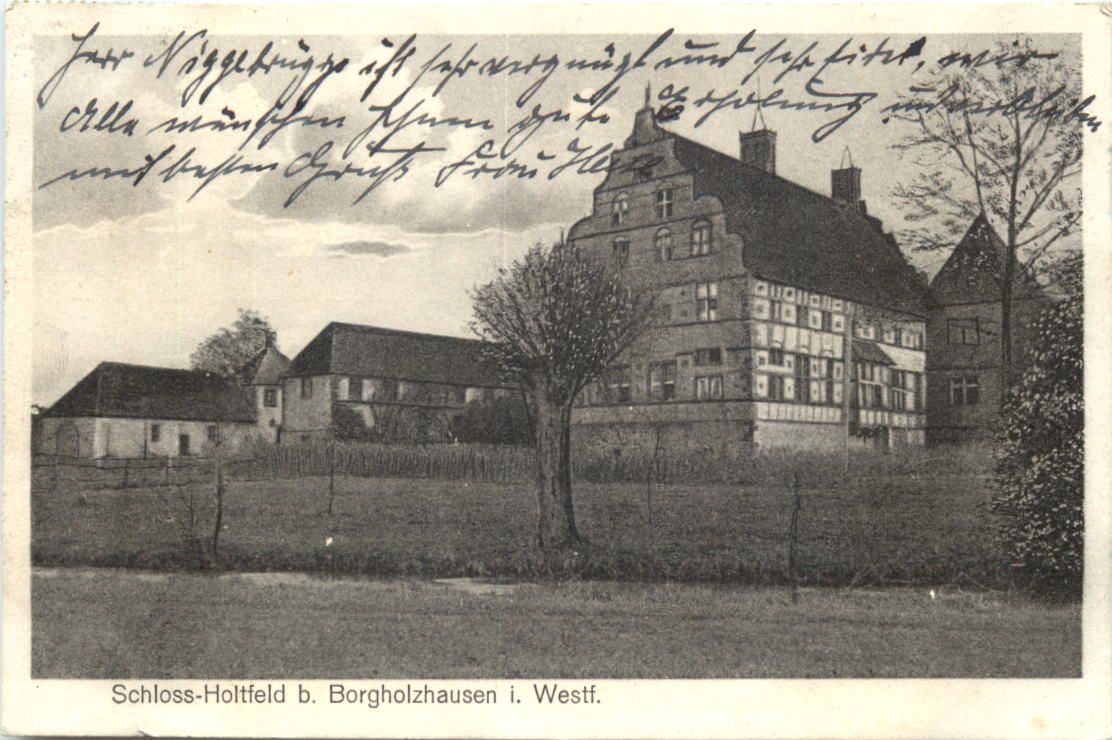 Herr Niggebrügge ist sehr vergnügt und sehr fidel, wir
Alle wünschen Ihnen gute Erholung und verbleiben
mit besten Gruß Frau
Schloss-Holtfeld b. Borgholzhausen i. Westf.